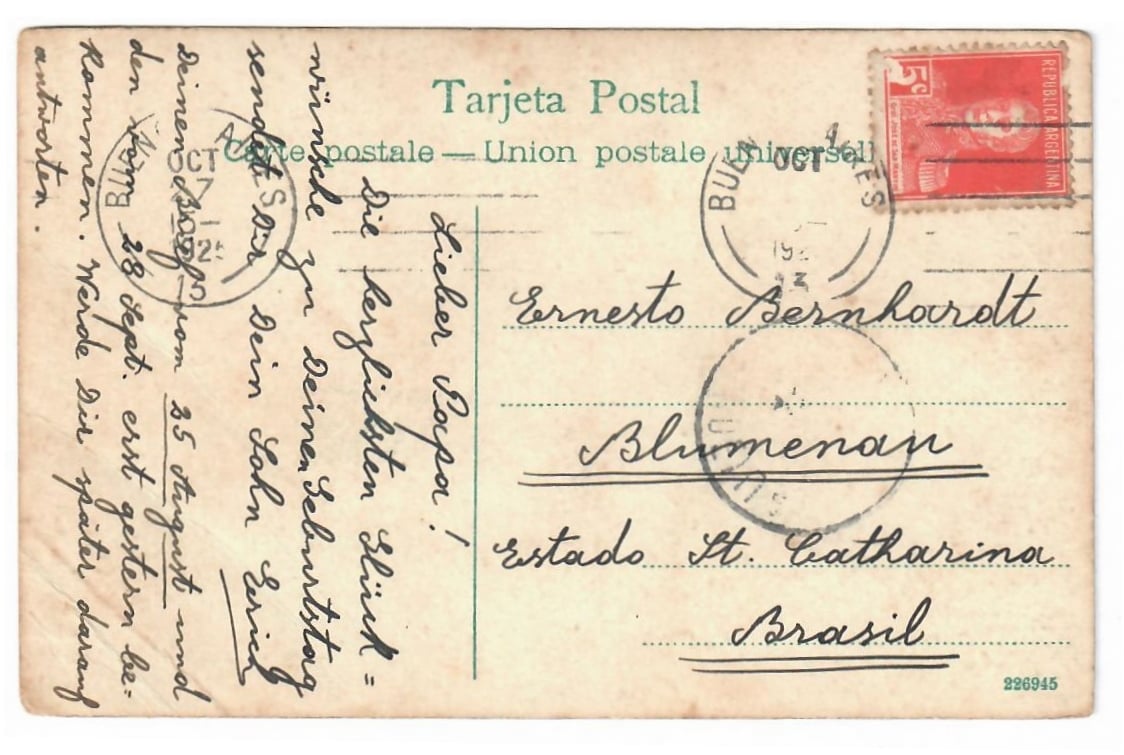 Tarjeta Postal
Carte postale — Union postale universell
5c
REPUBLICA ARGENTINA
OCT
192
OCT
7
Lieber Papa!
Die herzlichsten Glück=
wünsche zu Deinen Geburtstag
sendet Dir Dein Sohn Erich
Deinen Brief vom 25 August und
den vom 28 Sept. erst gestern be=
kommen. Werde Dir später darauf
antworten.
Ernesto Bernhardt
Blumenau
Estado St. Catharina
Brasil
226945